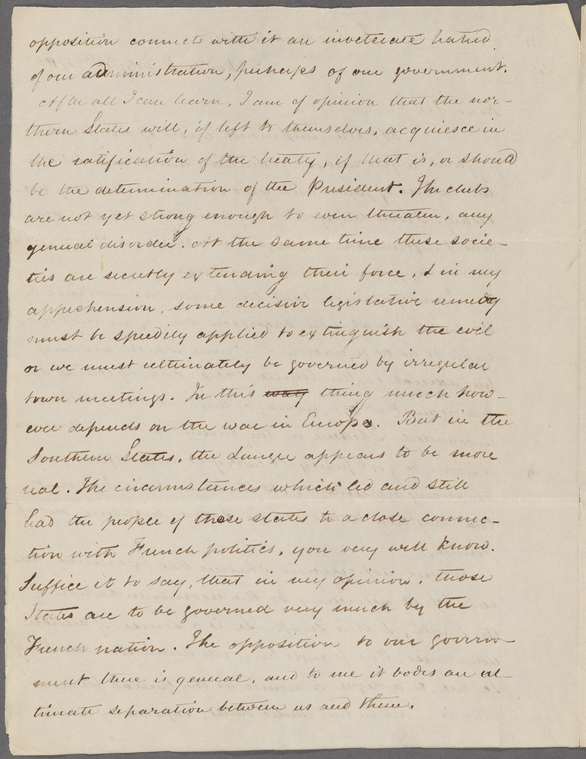 opposition connects with it an inveterate hatred
of our administration, perhaps of our government.
After all I can learn, I am of opinion that the nor-
thern States will, if left to themselves, acquiesce in
the ratification of the treaty, if that is, or should
be the determination of the President. The clubs
are not yet strong enough to even threaten, any
general disorder. At the same time these socie-
ties are secretly extending their force, & in my
apprehension, some decisive legislative remedy
must be speedily applied to extinguish the evil
or we must ultimately be governed by irregular
town meetings. In this way thing much how-
ever depends on the war in Europe. But in the
Southern States, the danger appears to be more
real. The circumstances which led and still
lead the people of those states to a close connec-
tion with French politics, you very well know.
Suffice it to say, that in my opinion, those
States are to be governed very much by the
French nation. The opposition to our govern-
ment there is general, and to me it bodes an ul-
timate separation between us and them.